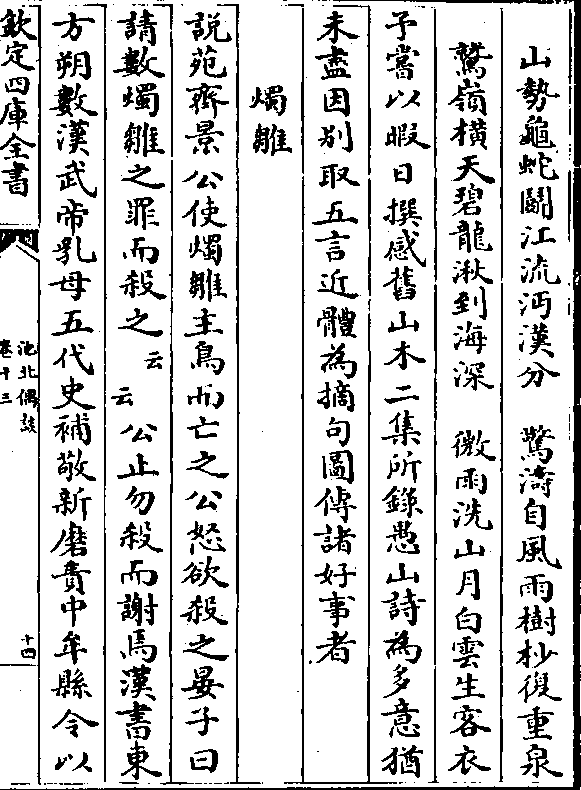 山勢龜蛇鬭江流沔漢分　驚濤自風雨樹杪復重泉
鷲嶺橫天碧龍湫到海深　微雨洗山月白雲生客衣
予嘗以暇日撰感舊山木二集所錄愚山詩為多意猶
未盡因别取五言近體為摘句圖傳諸好事者
燭雛
説苑齊景公使燭雛主鳥而亡之公怒欲殺之晏子曰
請數燭雛之罪而殺之云云公止勿殺而謝焉漢書東
方朔數漢武帝乳母五代史補敬新磨責中牟縣令以
欽定四庫全書
池北偶談
卷十三
十四